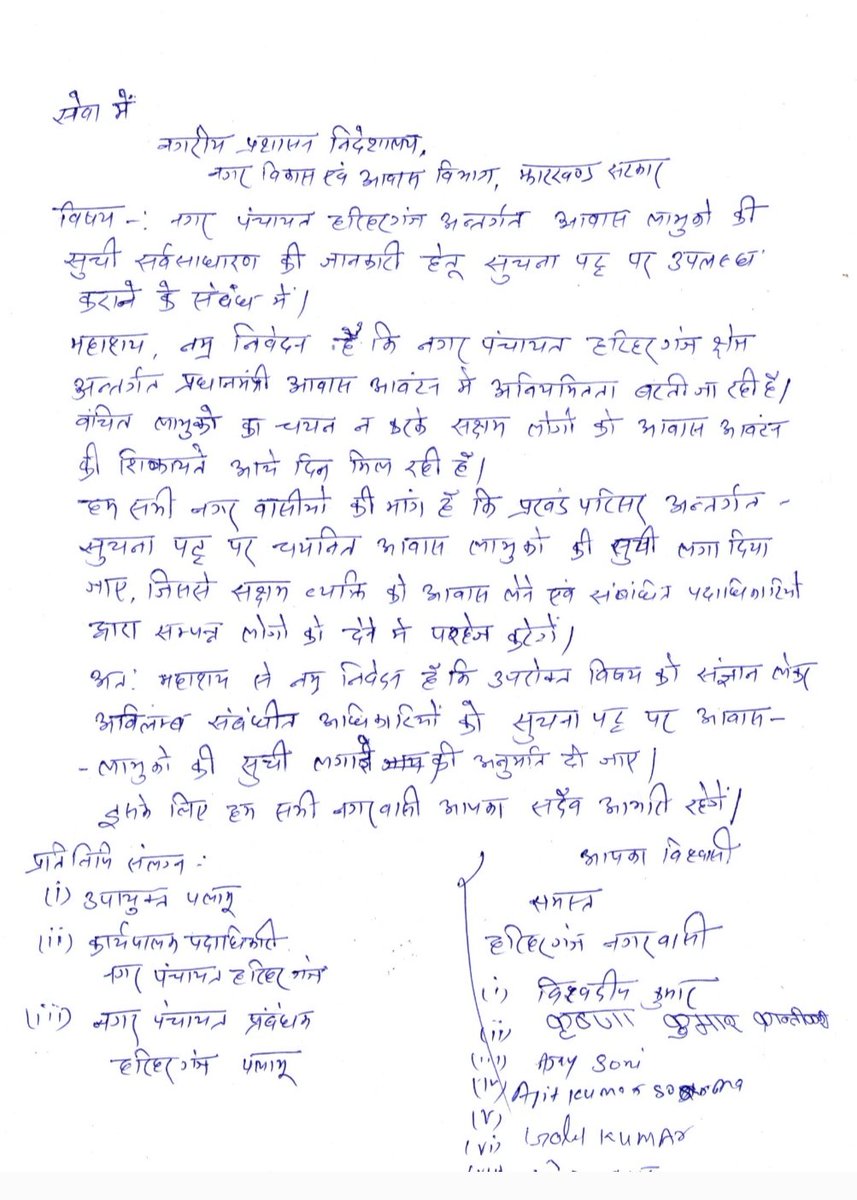 सेवा में
नगरीय प्रशासन निदेशालय,
नगर विकास एवं आवास विभाग, झारखण्ड सरकार
विषय -: नगर पंचायत हरिहरगंज अन्तर्गत आवास लाभुको की
सुची सर्वसाधारण की जानकारी हेतू सुचना पट्ट पर उपलब्ध
कराने के संबंध में।
महाशय, नम्र निवेदन है कि नगर पंचायत हरिहरगंज क्षेत्र
अन्तर्गत प्रधानमंत्री आवास आवंटन में अनियमितता बरती जा रही है।
वंचित लाभुको का चयन न करके सक्षम लोगो को आवास आवंटन
की शिकायते आये दिन मिल रही हैं।
हम सभी नगर वासीयो की मांग हैं कि प्रखंड परिसर अन्तर्गत -
सुचना पट्ट पर चयनित आवास लाभुको की सुची लगा दिया
जाए, जिससे सक्षम व्यक्ति को आवास लेने एवं संबंधित पदाधिकारियों
द्वारा सम्पन्न लोगो को देने मे परहेज करेगें।
अतः महाशय से नम्र निवेदन हैं कि उपरोक्त विषय को संज्ञान लेकर
अविलम्ब संबंधीत अधिकारियों को सुचना पट्ट पर आवास-
- लाभुको की सुची लगाने की अनुमति दी जाए।
इसके लिए हम सभी नगरवासी आपका सदैव आभारी रहेगें।
प्रतिलिपि संलग्न :
(i) उपायुक्त पलामू
(ii) कार्यपालक पदाधिकारी
नगर पंचायत हरिहरगंज
(iii) नगर पंचायत प्रबंधक
हरिहरगंज पलामू
आपका विश्वासी
समस्त
हरिहरगंज नगरवासी
(i) विश्वदीप कुमार
(ii) कृष्णा कुमार
(iii) Ajay Soni
(iv) Ajit Kumar
(v)
(vi) KUMAR